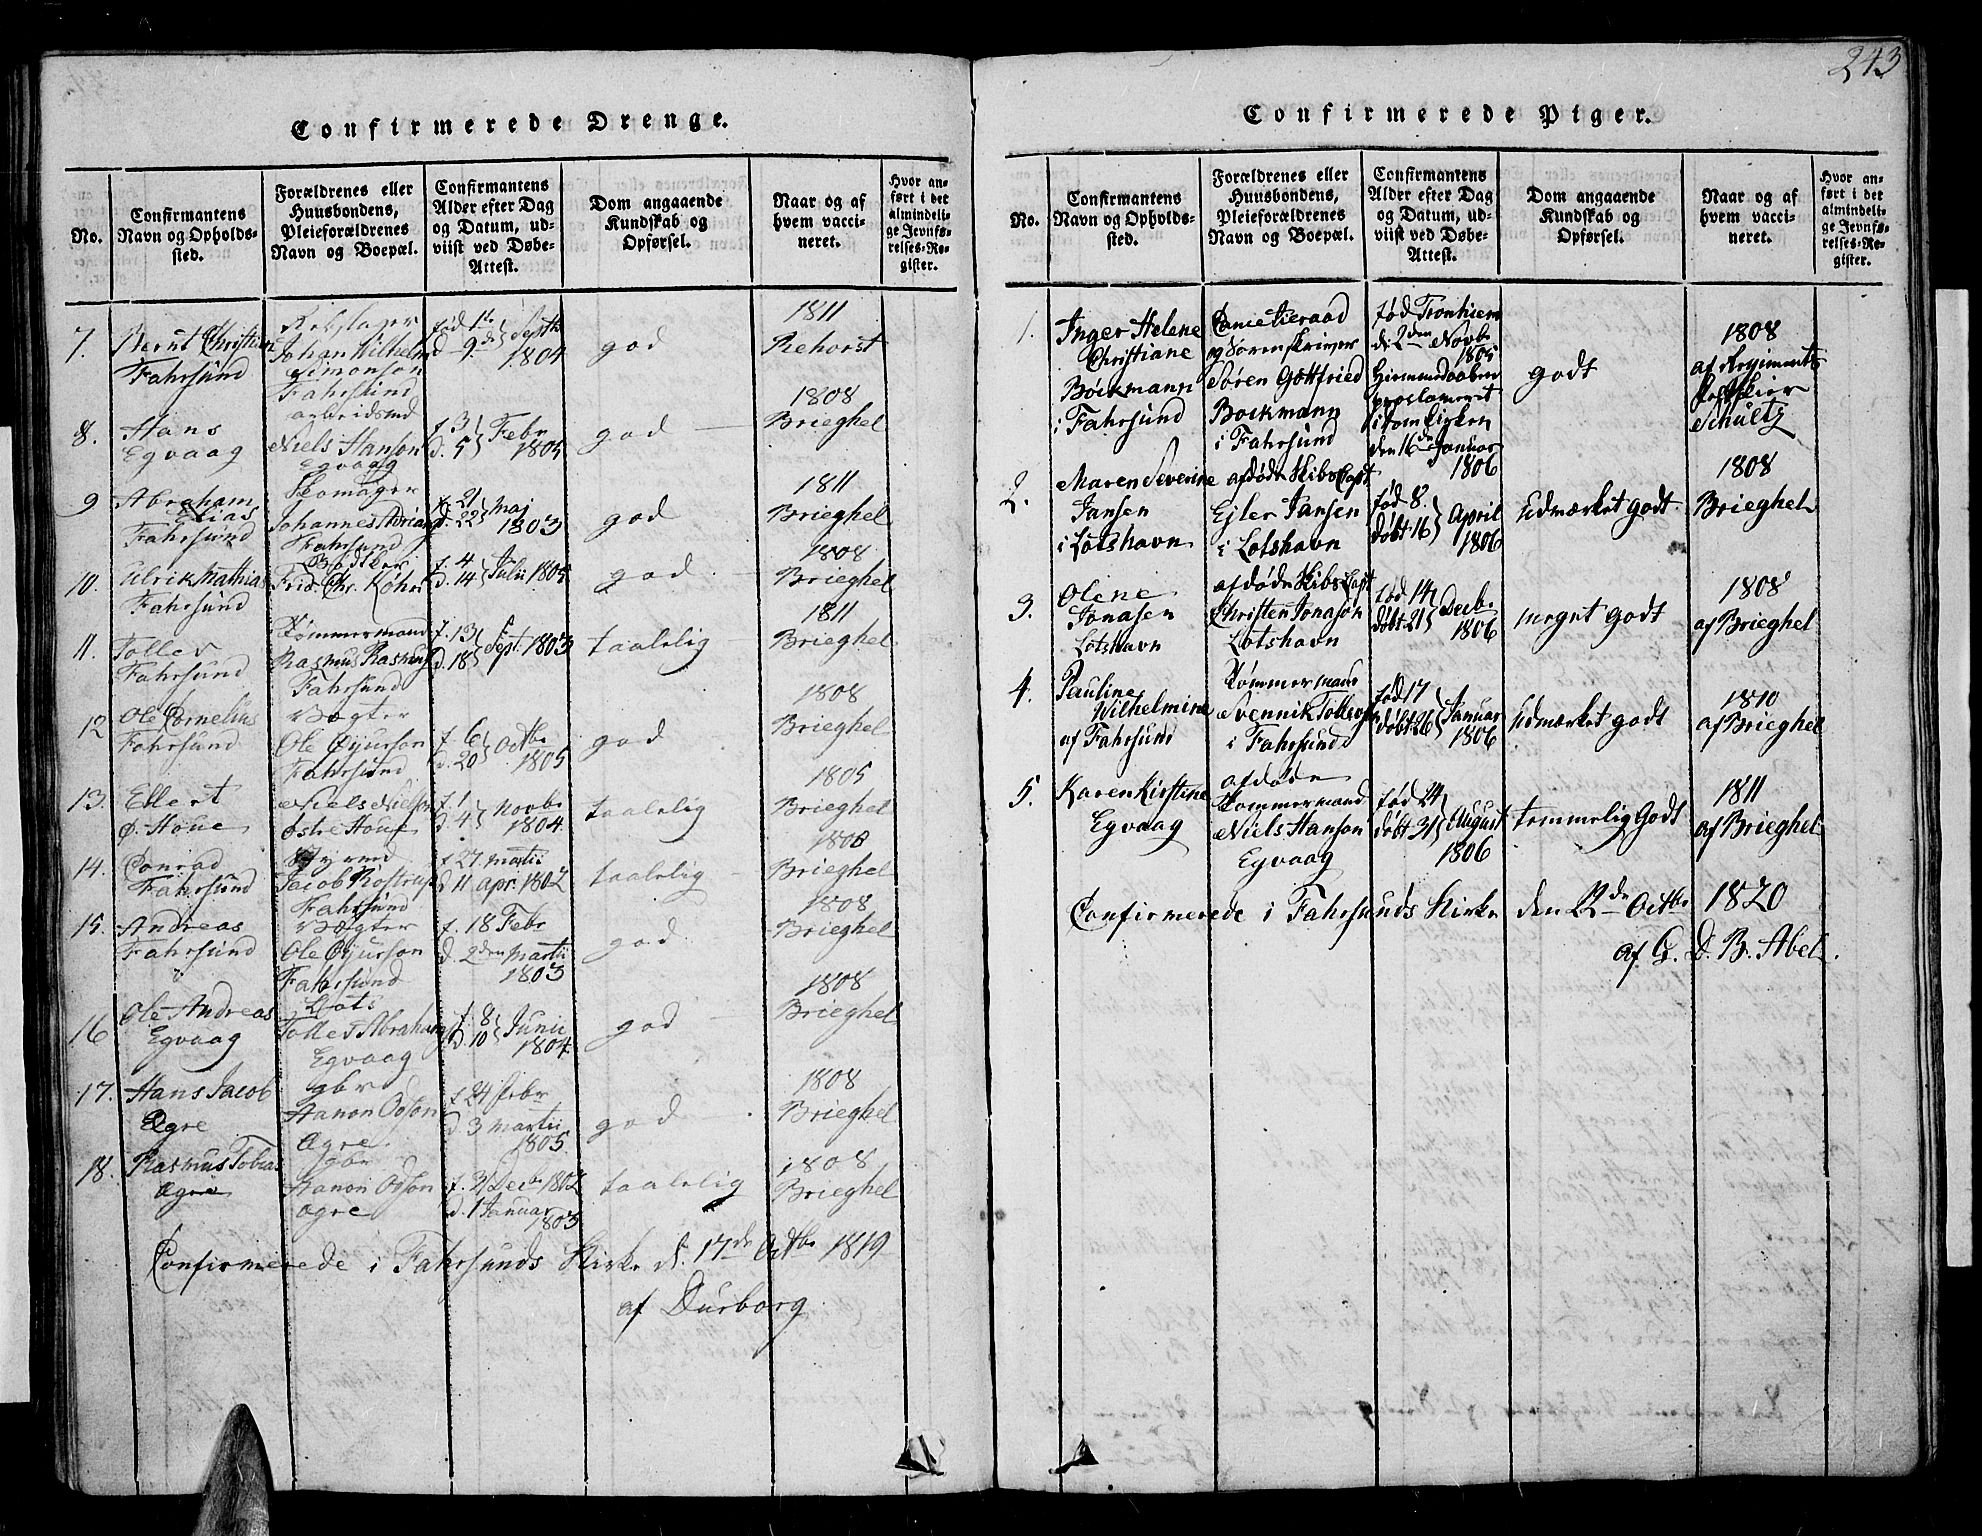 243
Confirmerede Drenge.
No.
Confirmantens
Navn og Opholds-
sted.
Forældrenes eller
Huusbondens,
Pleieforældrenes
Navn og Boepæl.
Confirmantens
Alder efter Dag
og Datum, ud-
viist ved Døbe-
Attest.
Dom angaaende
Kundskab og
Opførsel.
Naar og af
hvem vacci-
neret.
Hvor an-
ført i det
almindeli-
ge Jevnfø-
relses-Re-
gister.
7.
Bernt Christian
Fahrsund
Rebslager
Johan Wilhelm
Simonson
Fahrsund
fød 1te
d 9de Septb
1804
god
1811
Rehorst
8.
Hans
Egvaag
arbeidsmd
Niels Hanson
Egvaag
f. 3
d. 5 Febr
1805
god
1808
Brieghel
9
Abraham
Elias
Fahrsund
Skomager
Johannes
Fahrsund
f. 21
d. 22 Maj
1803
god
1811
Brieghel
10.
Ulrik Mathias
Fahrsund
Bødker
Frid. Chr. Kohn
f. 4
d. 14 Julii 1805
god
1808
Brieghel
11.
Tollev
Fahrsund
Tømmermand
Rasmus
Fahrsund
f. 13
d. 18 Sept. 1803
taalelig
1811
Brieghel
12
Ole Cornelius
Fahrsund
Vægter
Ole
Fahrsund
f. 6
d. 20 Octbr
1805
god
1808
Brieghel
13.
Ellert
Ø. Houe
Niels Nielson
Østre Houe
f. 1
d. 4 Novbr
1804.
taalelig
1805
Brieghel
14.
Conrad
Fahrsund
Jacob Rostrup
Fahrsund
f. 27 Martii
d 11 apr. 1802
taalelig
1808
Brieghel
15.
Andreas
Fahrsund
Vægter
Ole
Fahrsund
f. 18 Febr
d. 2den Martii
1803
god
1808
Brieghel
16
Ole Andreas
Egvaag
Lots
Tollef Abraham
Egvaag
f. 8
d. 10 Junii
1804
god
1808
Brieghel
17.
Hans Jacob
Agre
gbr
Hanon Odson
Agre.
f 24 Febr
d 3 Martii
1805.
god
1808
Brieghel
18.
Rasmus Tobias
Agre
gbr
Hanon Odson
Agre
f. 31 Decb 1802
d. 1 Januar
1803
taalelig
1808
Brieghel
Confirmerede i Fahrsunds Kirke d. 17de Octbr 1819
af Durborg
Confirmerede Piger.
No.
Confirmantens
Navn og Opholds-
sted.
Forældrenes eller
Huusbondens,
Pleieforældrenes
Navn og Boepæl.
Confirmantens
Alder efter Dag
og Datum, ud-
viist ved Døbe-
Attest.
Dom angaaende
Kundskab og
Opførsel.
Naar og af
hvem vacci-
neret.
Hvor an-
ført i det
almindeli-
ge Jevnfø-
relses-Re-
gister.
1.
Inger Helene
Christiane
Böckmann
i Fahrsund
Cancelieraad
og Sorenskriver
Søren Gottfried
Bockmann
i Fahrsund
fød Tronhiem
d: 2den Novbr
1805
Hiemmedaaben
proclameret
i Domkirken
den 16de Januar
1806
godt
1808
af Regiments
Schultz
2.
Maren Severine
Jansen
i Lotshavn
afdøde Skibs Capt.
Ejler Jansen
i Lotshavn
fød 8.
døbt 16 April
1806
Udmærket godt
1808
Brieghel
3.
Olene
Jonasen
Lotshavn
afdøde Skibs Capt
Christen Jonason
Lotshavn
fød 14
døbt 21 Decbr
1806
meget godt
1808
af Brieghel
4.
Pauline
Wilhelmine
af Fahrsund
Tømmermand
Svennik Tollevsen
i Fahrsund
fød 17
døbt 26 Januar
1806
Udmærket godt
1810
af Brieghel
5.
Karen Kirstine
Egvaag
afdøde
Tømmermand
Niels Hanson
Egvaag
fød 24
døbt 31 August
1806
temmelig Godt
1811
af Brieghel
Confirmerede i Fahrsunds Kirke den 22de Octbr 1820
af G. D. B. Abel.